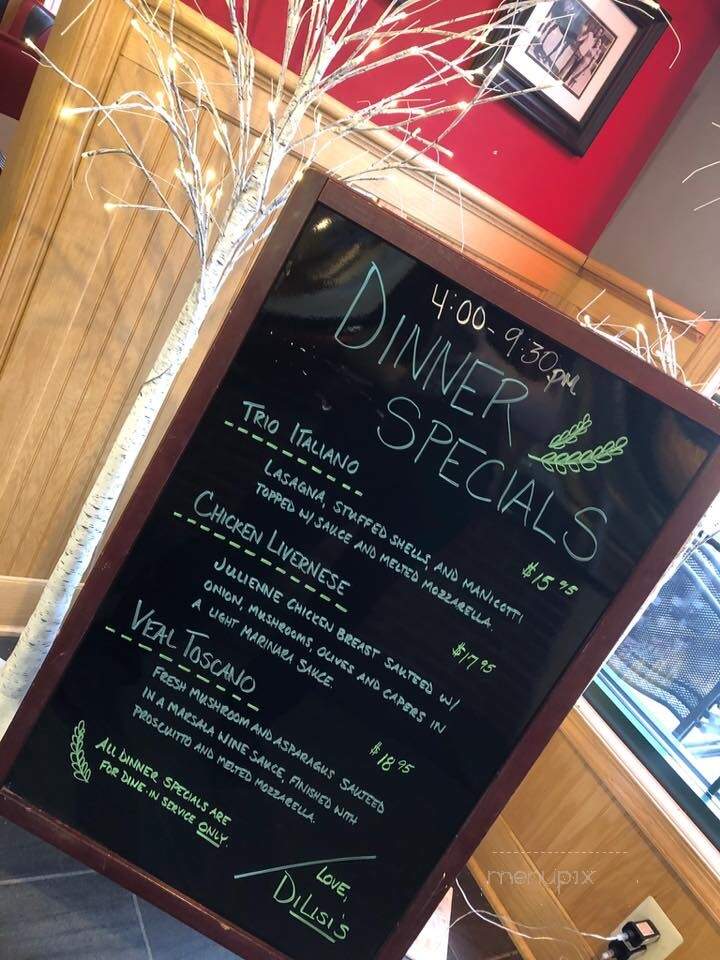 4:00-9:30pm
DINNER
SPECIALS
TRIO ITALIANO
LASAGNA, STUFFED SHELLS, AND MANICOTTI
TOPPED W/ SAUCE AND MELTED MOZZARELLA.
$15.95
CHICKEN LIVERNESE
JULIENNE CHICKEN BREAST SAUTEED W/
ONION, MUSHROOMS, OLIVES AND CAPERS IN
A LIGHT MARINARA SAUCE.
$17.95
VEAL TOSCANO
FRESH MUSHROOM AND ASPARAGUS SAUTEED
IN A MARSALA WINE SAUCE, FINISHED WITH
PROSCUITTO AND MELTED MOZZARELLA.
$18.95
ALL DINNER SPECIALS ARE
FOR DINE-IN SERVICE ONLY.
LOVE,
DiLisi's
menupix